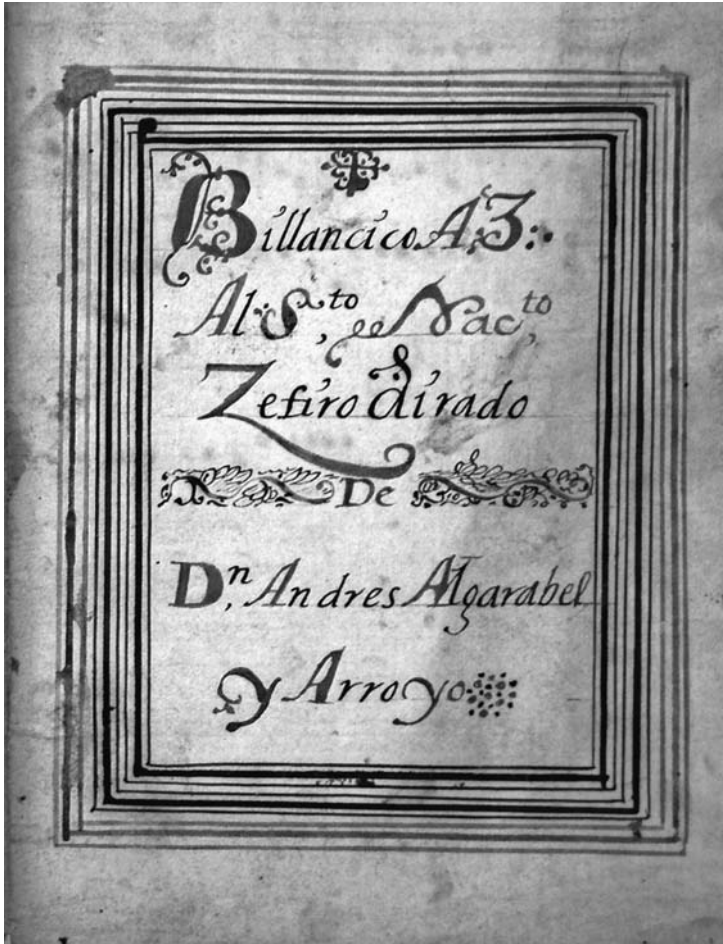 Billancico A3:
Al S,to Nac,to
Zefiro airado
De
D,n Andres Algarabel
y Arroyo